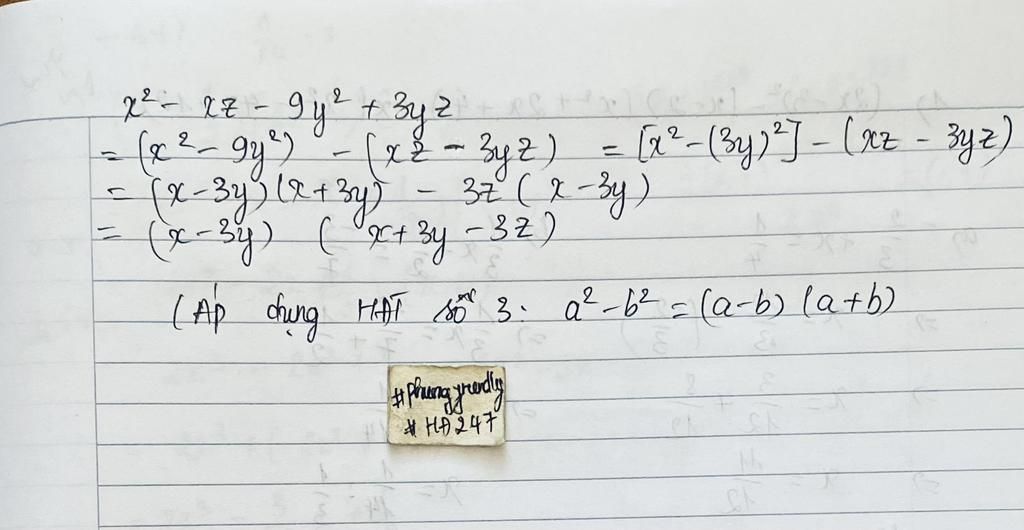 x² - xz - 9y² + 3yz
= (x² - 9y²) - (xz - 3yz) = [x² - (3y)²] - (xz - 3yz)
= (x - 3y)(x + 3y) - 3z (x - 3y)
= (x - 3y) (x + 3y - 3z)
(Áp dụng HĐT số 3: a² - b² = (a - b) (a + b)
#
# HĐ247